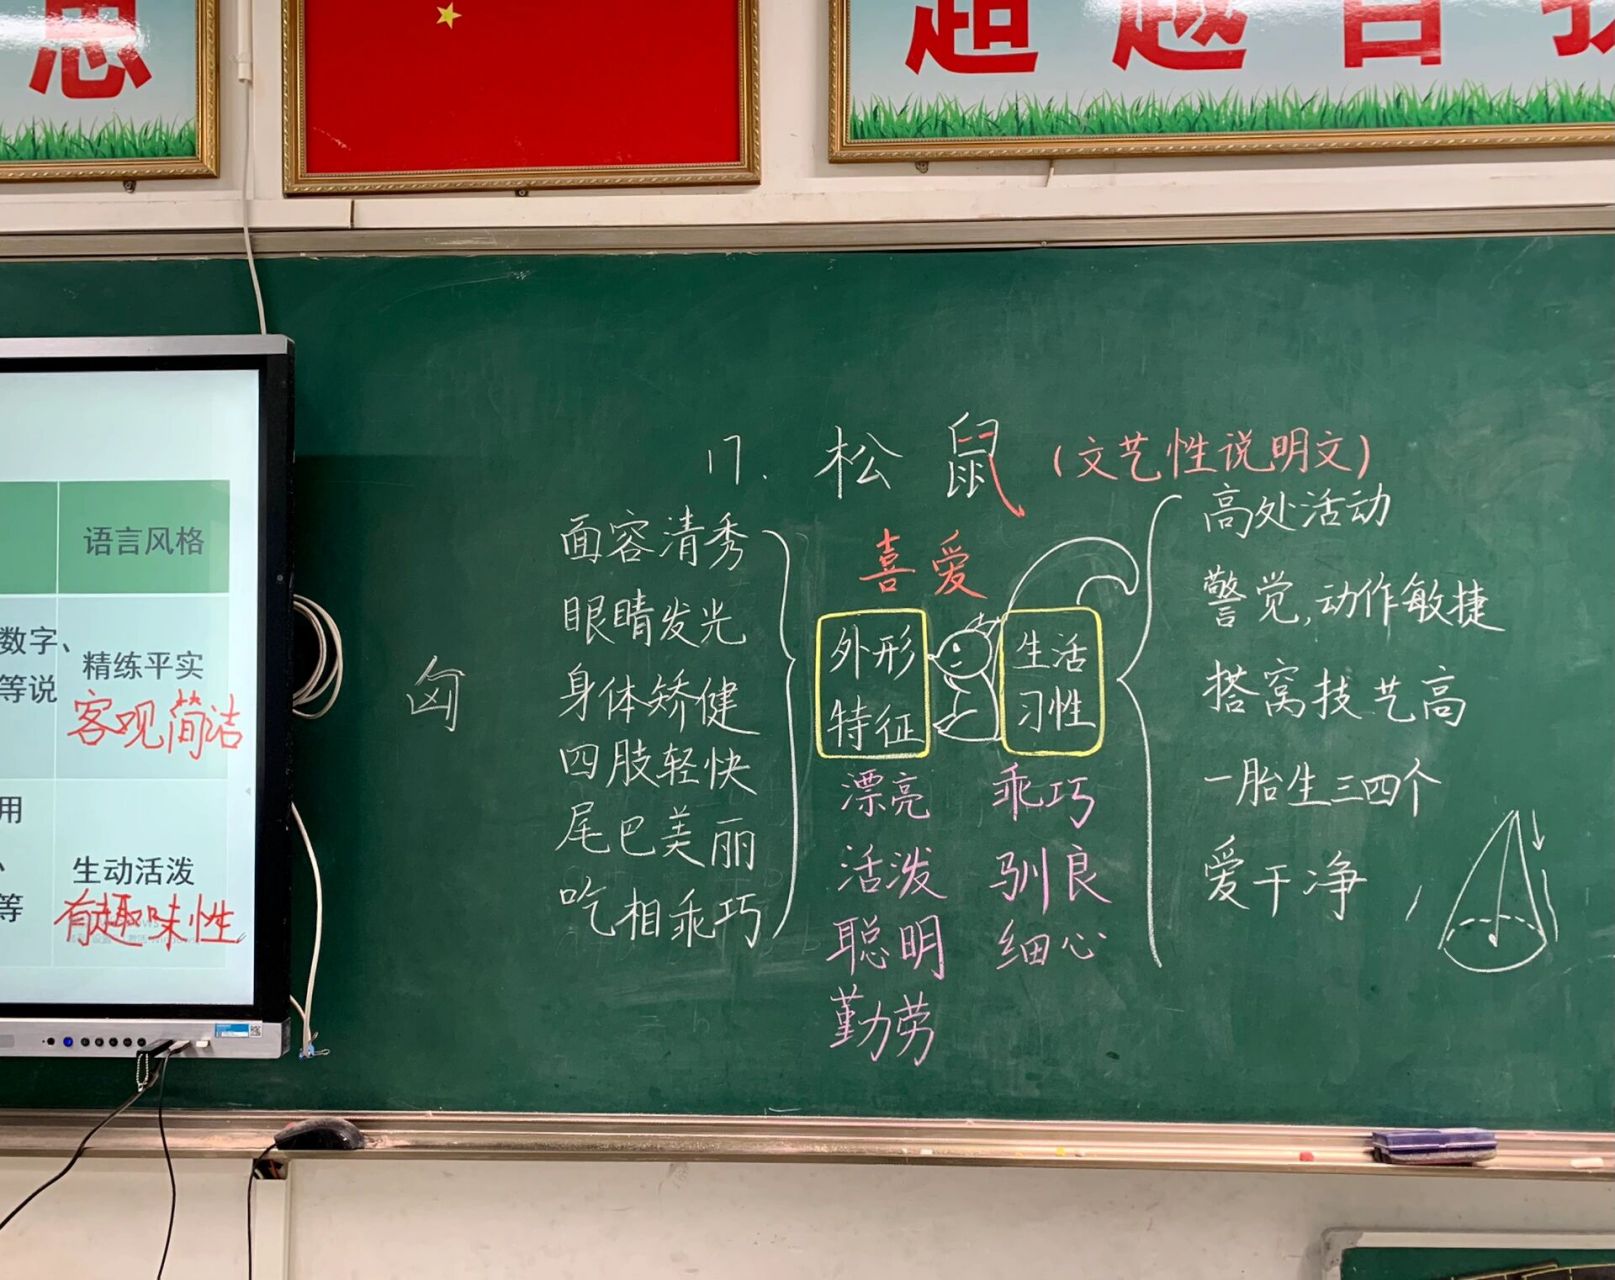 思
超越自我
语言风格
数字、
等说
精练平实
客观简洁
用
、
等
生动活泼
有趣味性
17. 松鼠 (文艺性说明文)
喜爱
匈
面容清秀
眼睛发光
身体矫健
四肢轻快
尾巴美丽
吃相乖巧
外形
特征
生活
习性
漂亮
活泼
聪明
勤劳
乖巧
驯良
细心
高处活动
警觉,动作敏捷
搭窝技艺高
一胎生三四个
爱干净